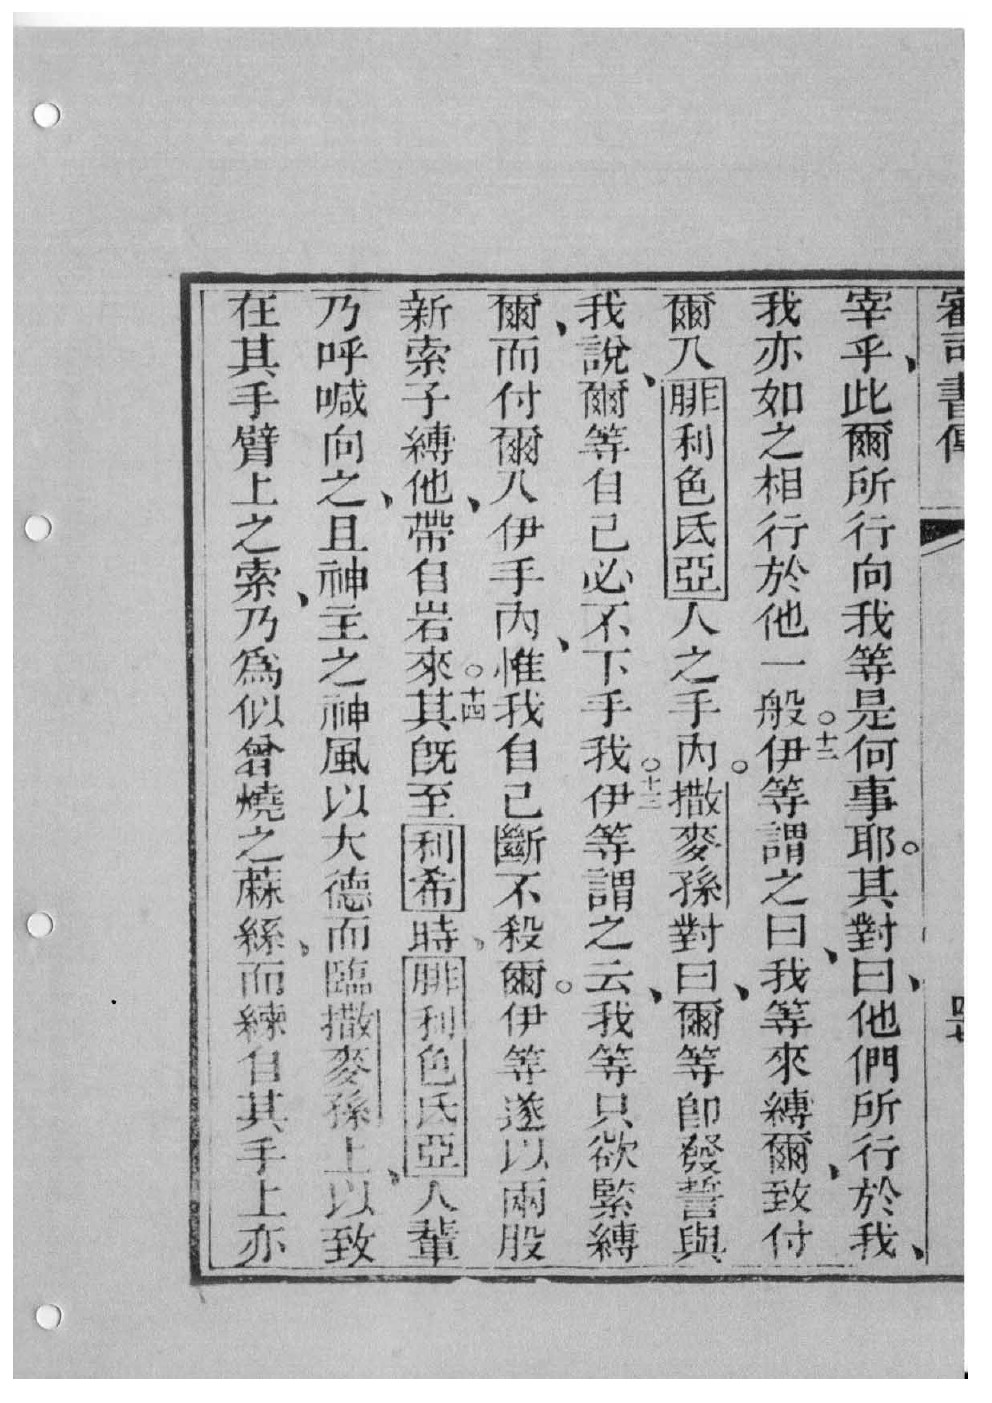 審司書傳
宰乎、此爾所行向我等是何事耶。其對曰、他們所行於我、
我亦如之相行於他一般。十二伊等謂之曰、我等來縛爾、致付
爾入腓利色氏亞人之手內。撒麥孫對曰、爾等卽發誓與
我說、爾等自己必不下手我。十三伊等謂之云、我等只欲緊縛
爾、而付爾入伊手內、惟我自己斷不殺爾。伊等遂以兩股
新索子縛他、帶自岩來。十四其旣至利希時、腓利色氏亞人輩
乃呼喊向之、且神主之神風以大德而臨撒麥孫上、以致
在其手臂上之索、乃爲似曾燒之蔴絲、而練自其手上亦